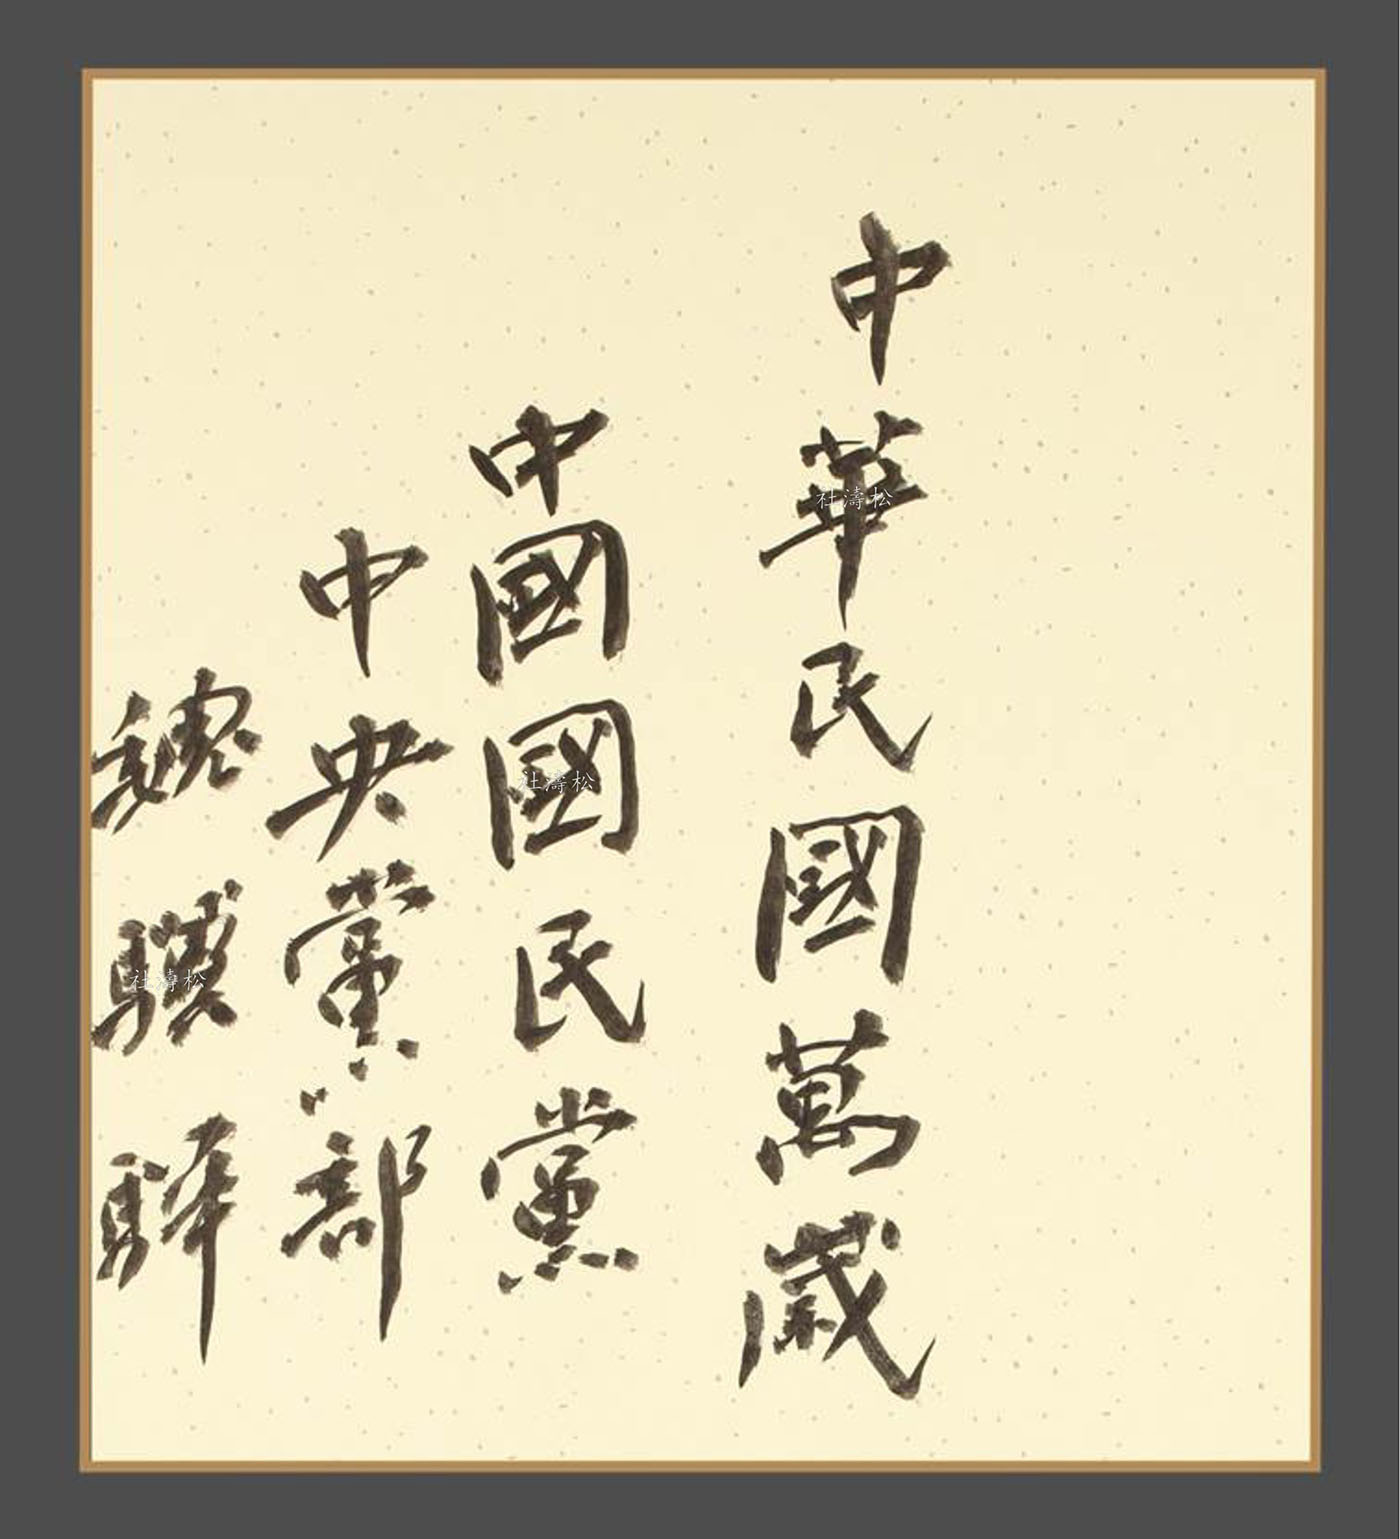 中華民國萬歲
中國國民黨
中央黨部
魏驥驛
社濤松
社濤松
社濤松